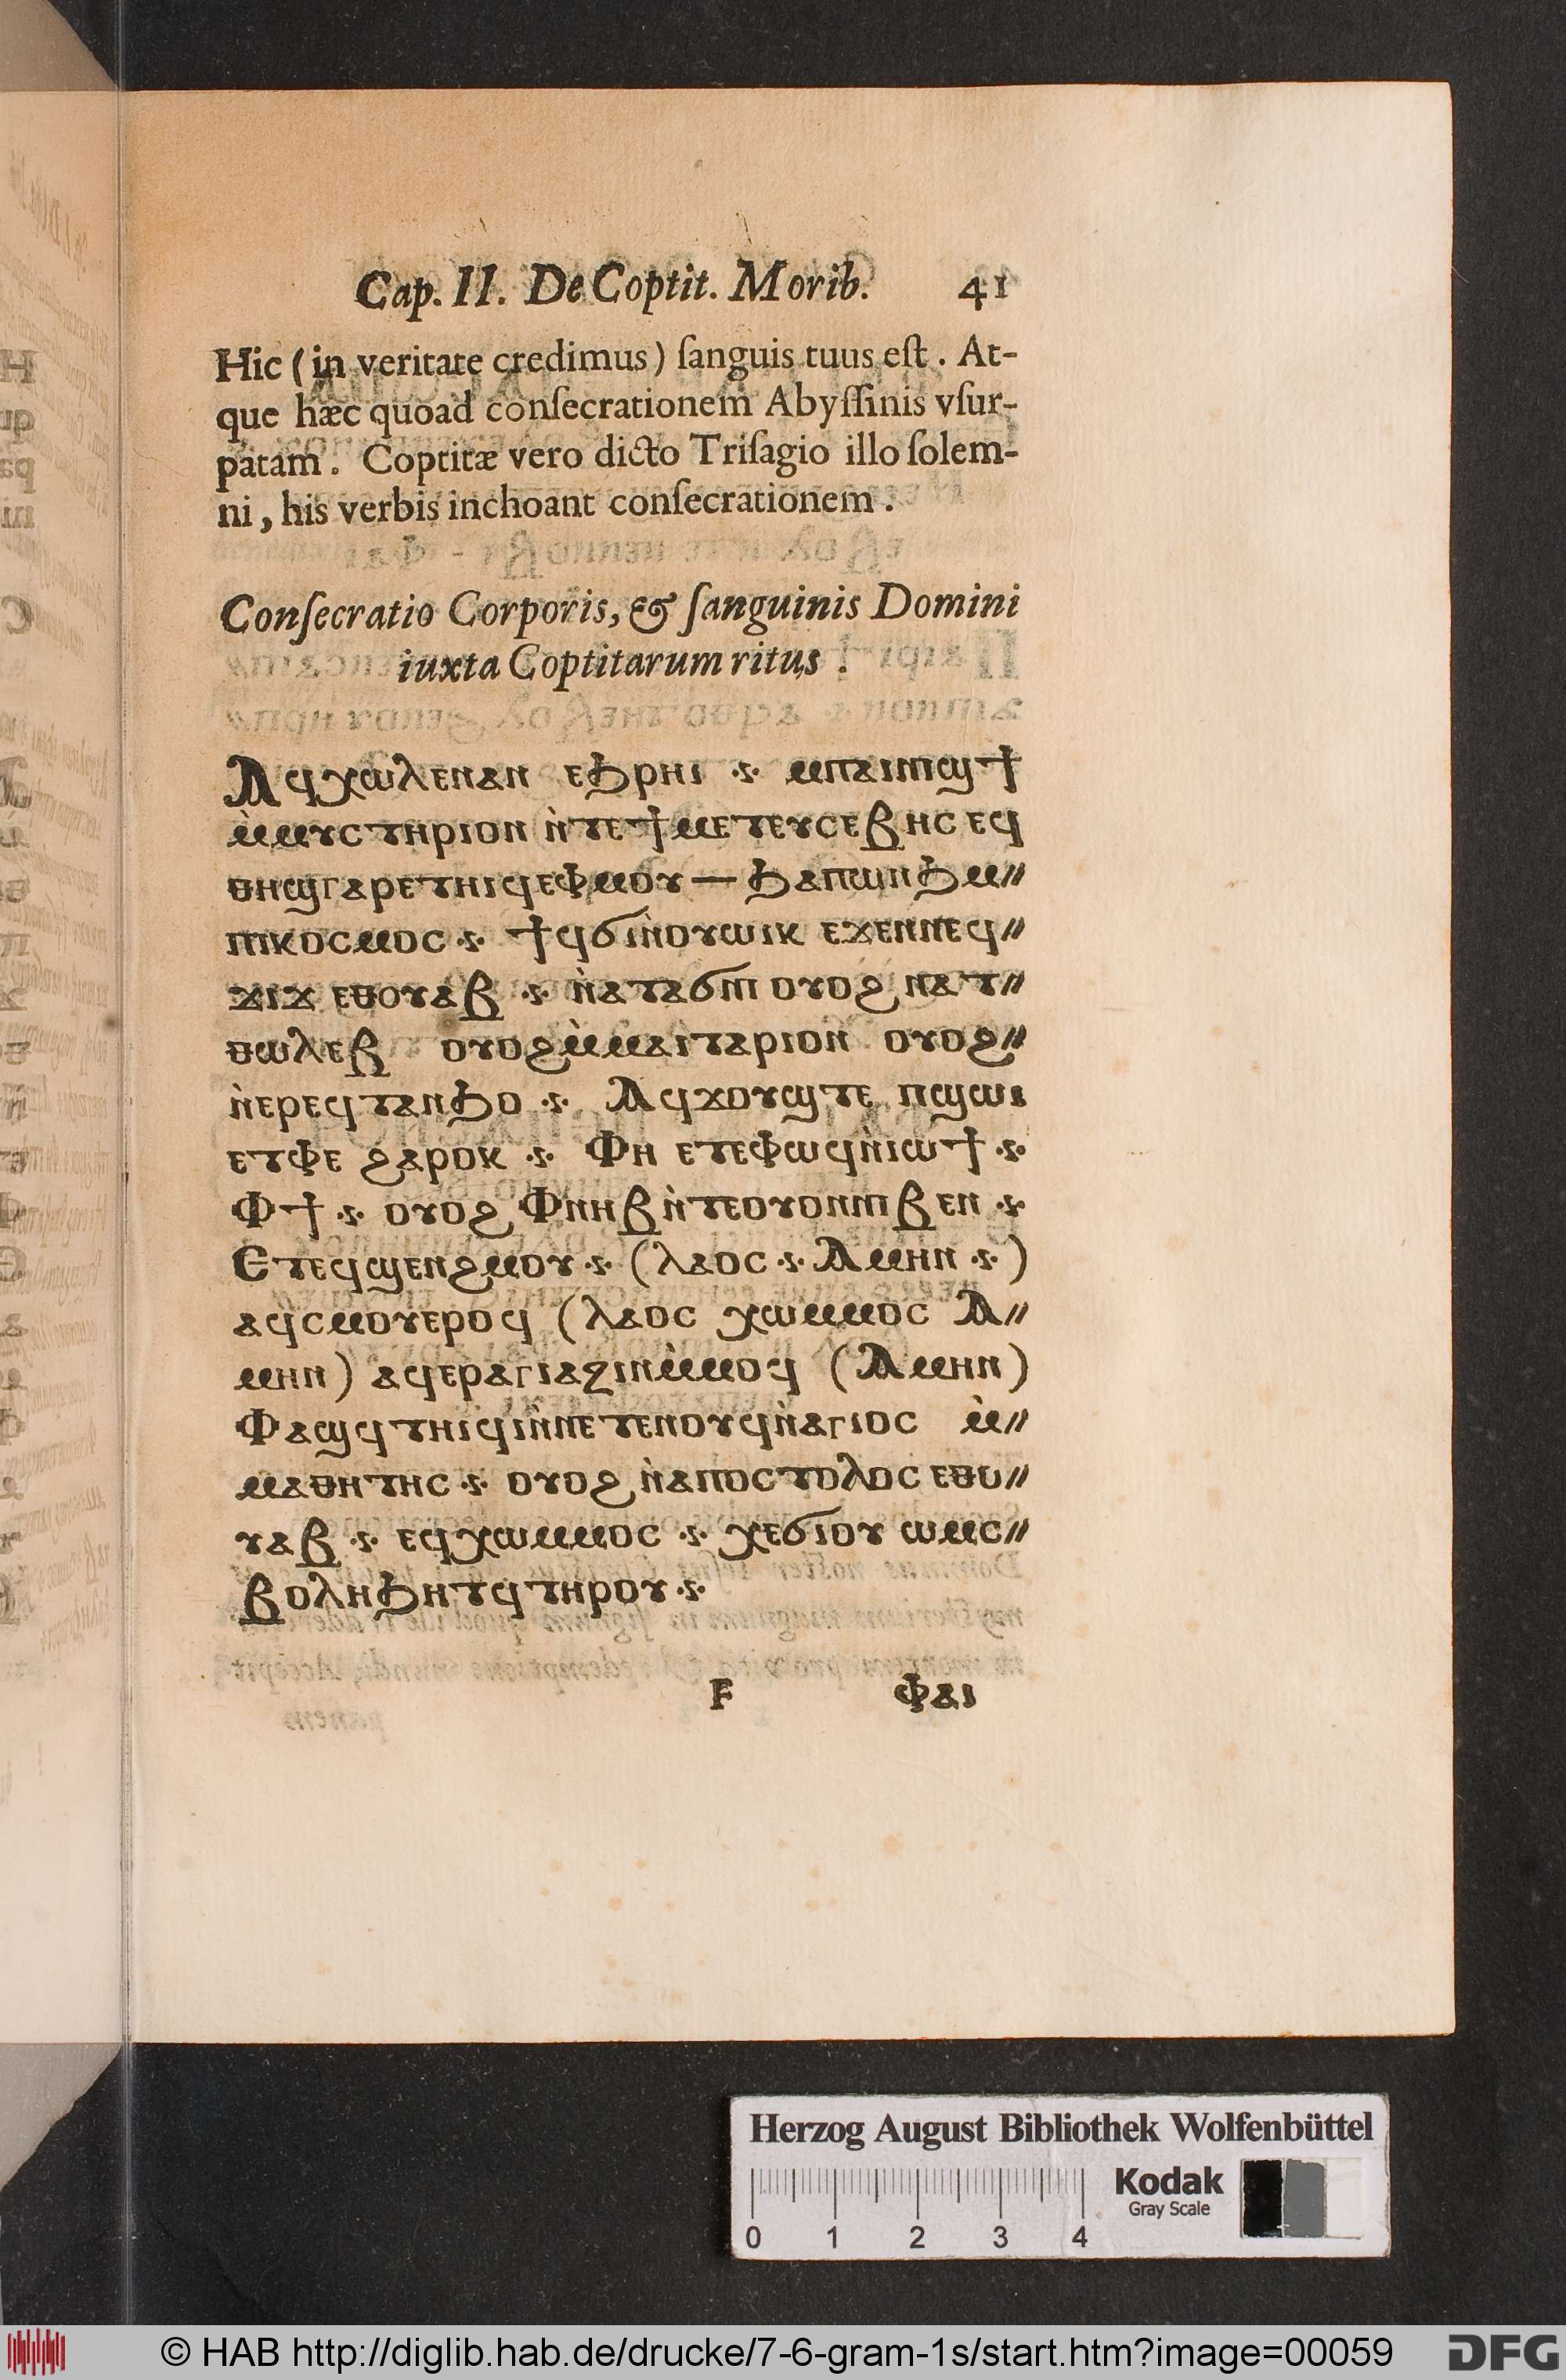 Cap. II. De Coptit. Morib. 41
Hic (in veritate credimus) ſanguis tuus eſt. At-
que hæc quoad conſecrationem Abyſſinis vſur-
patam. Coptitæ vero dicto Triſagio illo ſolem-
ni, his verbis inchoant conſecrationem.
Conſecratio Corporis, & ſanguinis Domini
iuxta Coptitarum ritus.
Ⲁϥⲭⲱⲗⲉⲛⲁⲛ ⲉϧⲣⲏⲓ ⁘ ⲙⲡⲁⲓⲡⲓϣϯ
ⲙ̀ⲙⲩⲥⲧⲏⲣⲓⲟⲛ ⲛ̀ⲧⲉϯⲙⲉⲧⲉⲩⲥⲉⲃⲏⲥ ⲉϥ
ⲑⲏϣⲅⲁⲣⲉⲧⲏⲓϥⲉⲫⲙⲟⲩ — ϧⲁⲡⲱⲛϧⲙ〃
ⲡⲓⲕⲟⲥⲙⲟⲥ ⁘ ϯϥϭⲓⲛ̀ⲟⲩⲱⲓⲕ ⲉϫⲉⲛⲛⲉϥ〃
ϫⲓϫ ⲉⲑⲟⲩⲁⲃ ⁘ ⲛ̀ⲁⲧⲁϭⲡⲓ ⲟⲩⲟϩ ⲛⲁⲧ〃
ⲑⲱⲗⲉⲃ ⲟⲩⲟϩⲙ̀ⲙⲁⲓⲧⲁⲣⲓⲟⲛ ⲟⲩⲟϩ〃
ⲛ̀ⲉⲣⲉϥⲧⲁⲛϧⲟ ⁘ Ⲁϥϫⲟⲩϣⲧⲉ ⲡϣⲱⲓ
ⲉⲧⲫⲉ ϩⲁⲣⲟⲕ ⁘ Ⲫⲏ ⲉⲧⲉⲫⲱϥⲛ̀ⲓⲱϯ ⁘
Ⲫϯ ⁘ ⲟⲩⲟϩ Ⲫⲛⲏⲃⲛ̀ⲧⲉⲟⲩⲟⲛⲡⲓⲃⲉⲛ ⁘
Ⲉⲧⲉϥϣⲉⲛϩⲙⲟⲩ ⁘ (ⲗⲁⲟⲥ ⁘ Ⲁⲙⲏⲛ ⁘)
ⲁϥⲥⲙⲟⲩⲉⲣⲟϥ (ⲗⲁⲟⲥ ⲭⲱⲙⲙⲟⲥ Ⲁ〃
ⲙⲏⲛ) ⲁϥⲉⲣⲁⲅⲓⲁⲍⲓⲛⲙ̀ⲙⲟϥ (Ⲁⲙⲏⲛ)
Ⲫⲁϣϥⲧⲏⲓϥⲓⲛ̀ⲛⲉⲧⲉⲛⲟⲩϥⲛ̀ⲁⲅⲓⲟⲥ ⲙ̀〃
ⲙⲁⲑⲏⲧⲏⲥ ⁘ ⲟⲩⲟϩ ⲛ̀ⲁⲡⲟⲥⲧⲟⲗⲟⲥ ⲉⲑⲟ〃
ⲩⲁⲃ ⁘ ⲉϥⲭⲱⲙⲙⲟⲥ ⁘ ⲭⲉϭⲓⲟⲩ ⲱⲙⲥ〃
ⲃⲟⲗⲏϧⲏⲧϥⲧⲏⲣⲟⲩ ⁘
F Ⲫⲁⲓ
Herzog August Bibliothek Wolfenbüttel
0 1 2 3 4
Kodak
Gray Scale
© HAB http://diglib.hab.de/drucke/7-6-gram-1s/start.htm?image=00059
DFG